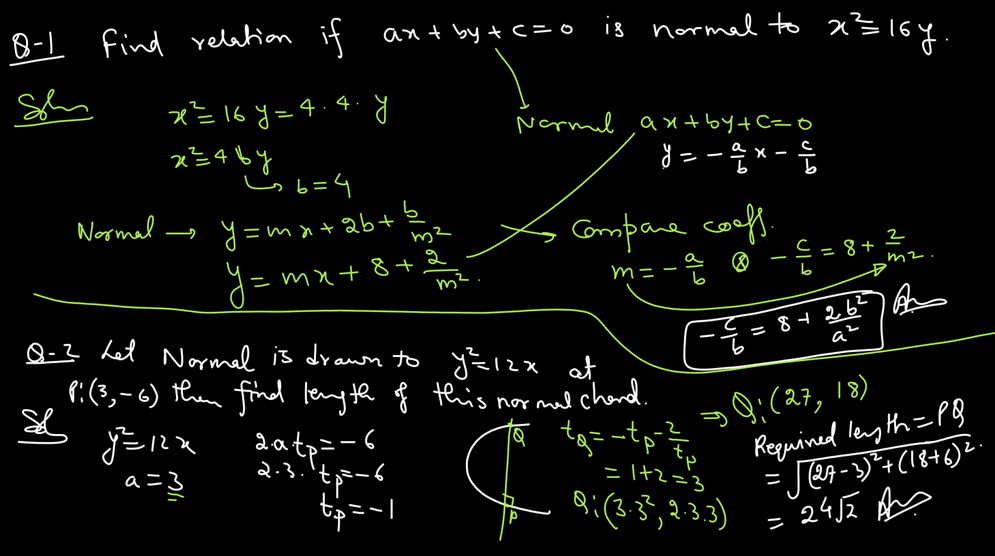 Q-1 Find relation if ax+by+c=0 is normal to x²=16y.
Soln
x²=16y=4·4·y
x²=4by
b=4
Normal → y=mx+2b+b/m²
y=mx+8+2/m².
Normal ax+by+c=0
y=-a/b x-c/b
Compare coeffs.
m=-a/b & -c/b=8+2/m².
-c/b=8+2b²/a² Ans
Q-2 Let Normal is drawn to y²=12x at
P:(3,-6) then find length of this normal chord.
Sol
y²=12x
a=3
2·a·tp=-6
2·3·tp=-6
tp=-1
Q
P
tQ=-tp-2/tp
=1+2=3
Q:(3·3², 2·3·3)
⇒ Q:(27, 18)
Required length=PQ
=√(27-3)²+(18+6)².
=24√2 Ans